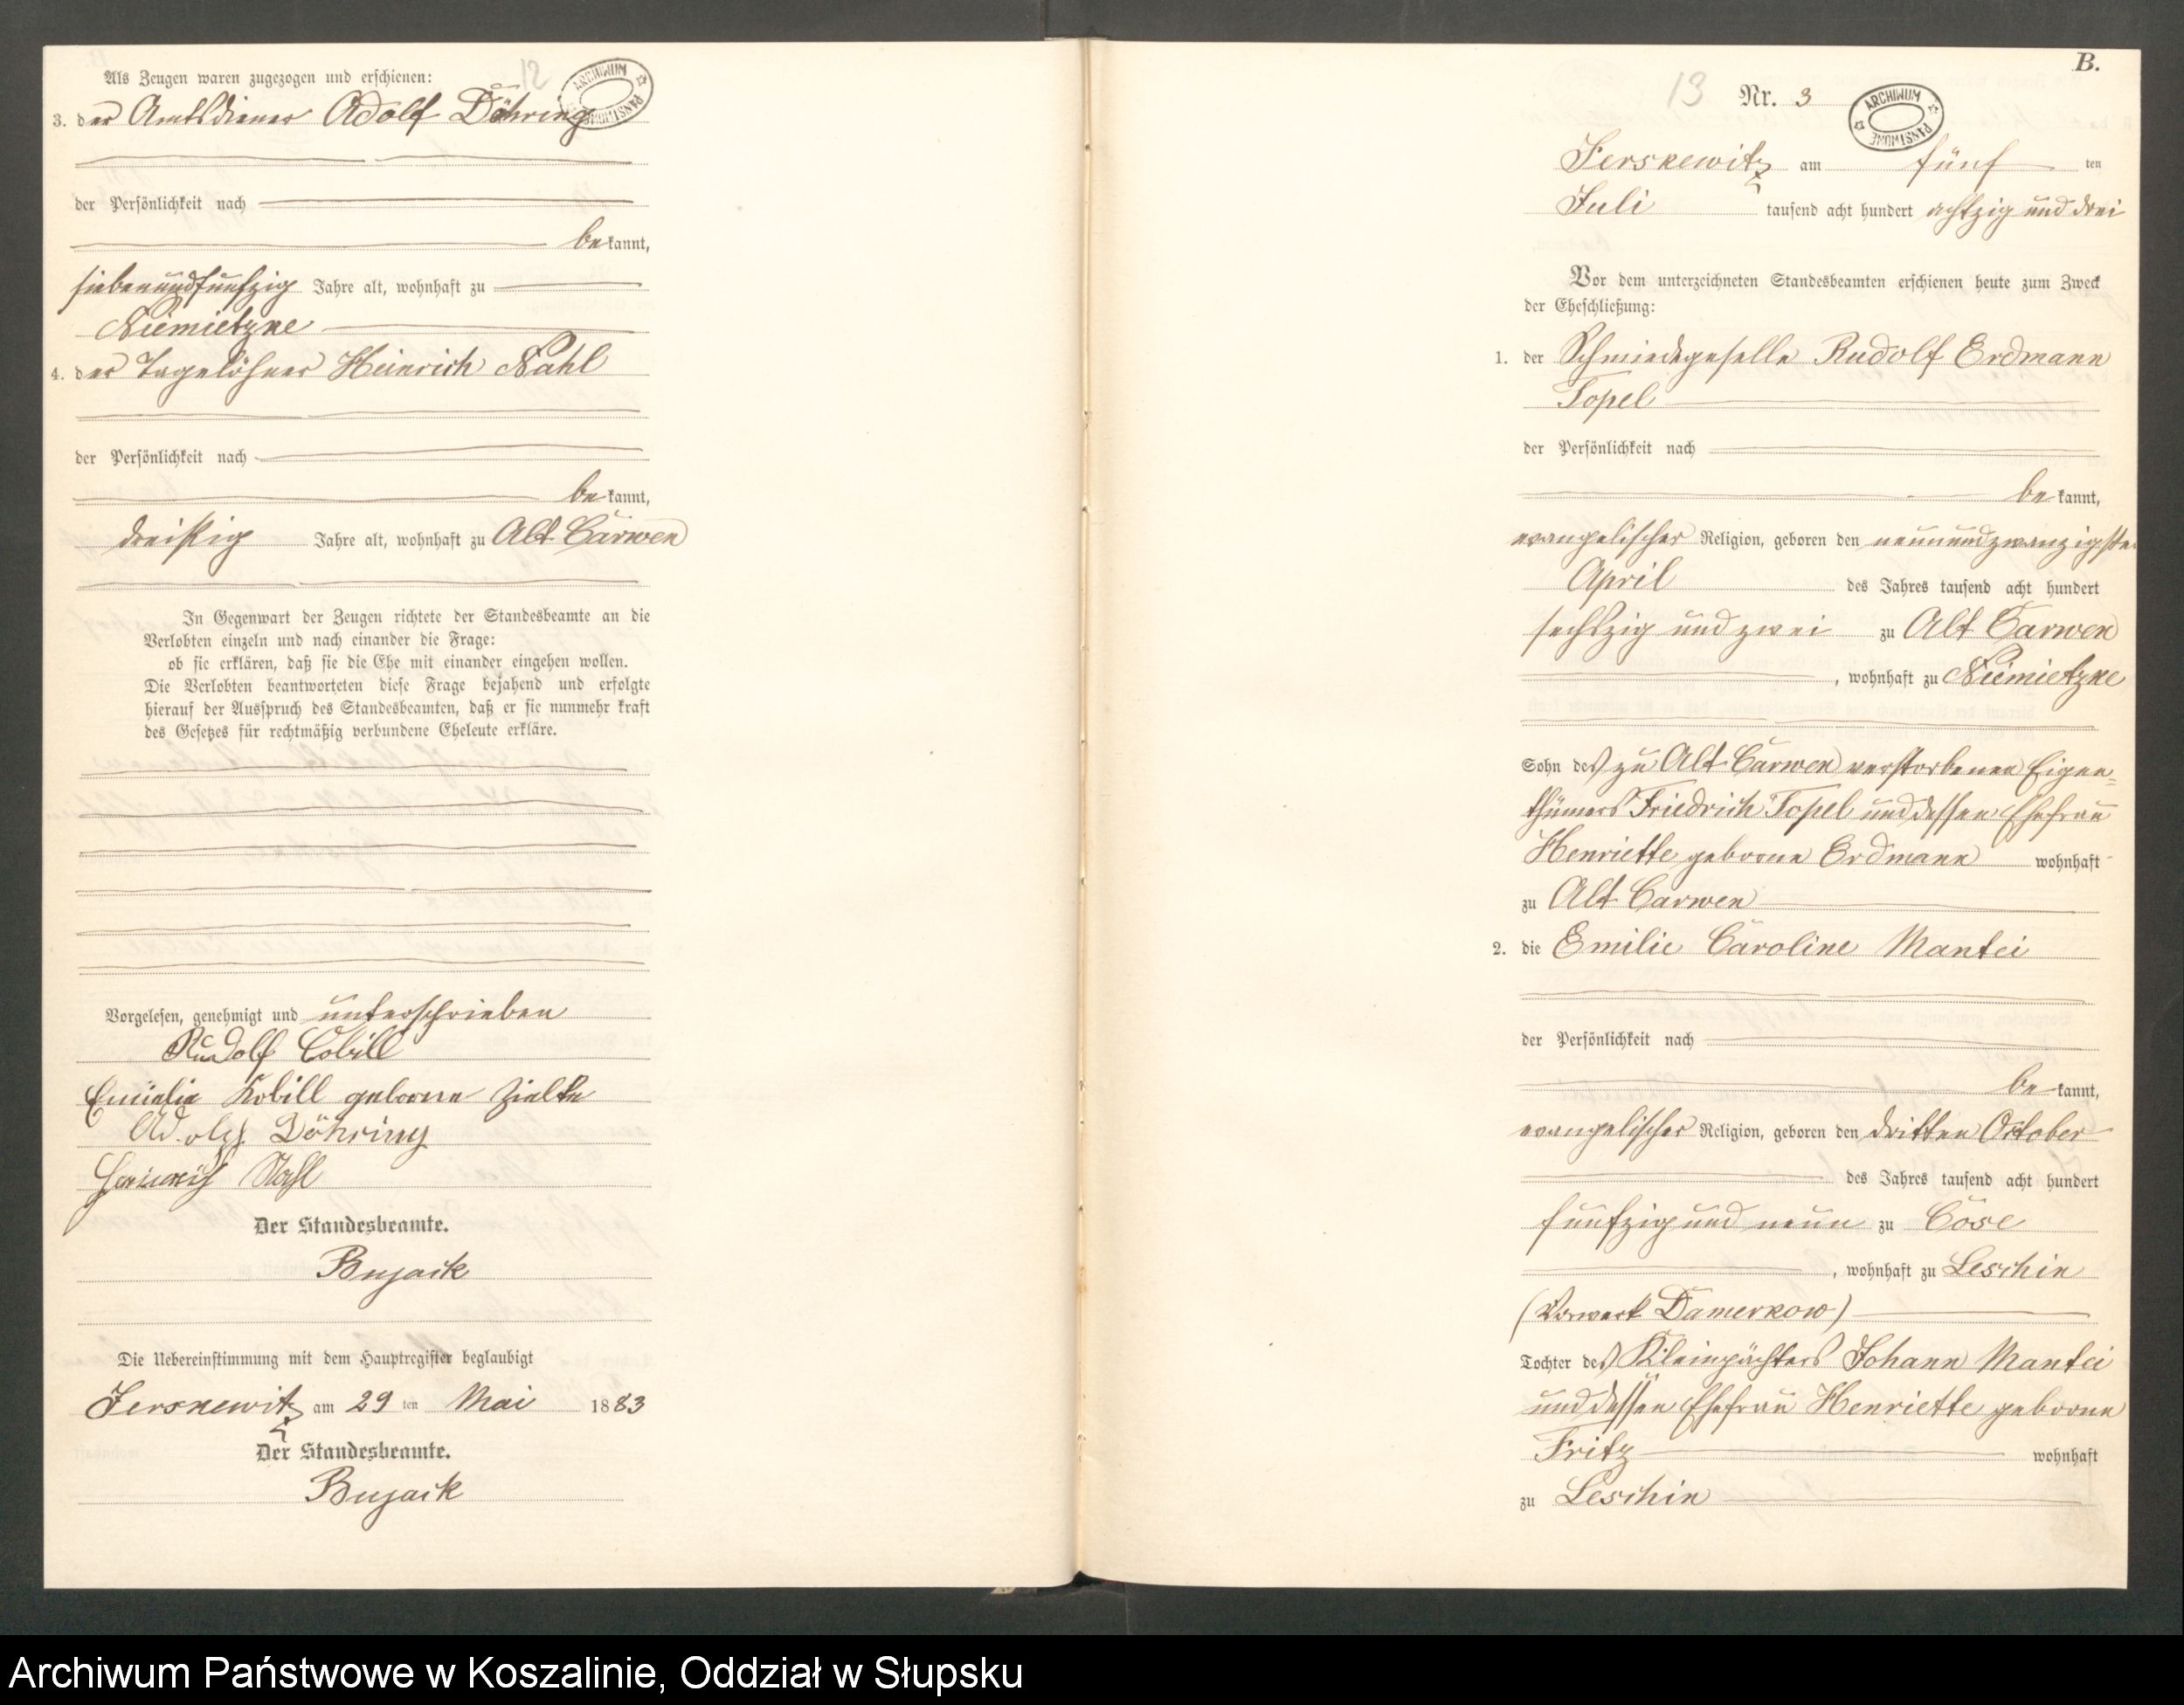 Als Zeugen waren zugezogen und erschienen:
12
ARCHIWUM PAŃSTWOWE
3. der Amtsdiener Adolf Döhring
der Persönlichkeit nach
bekannt,
siebenundfunfzig Jahre alt, wohnhaft zu
Niemietzke
4. der Tagelöhner Heinrich Nahl
der Persönlichkeit nach
bekannt,
dreißig Jahre alt, wohnhaft zu Alt Carwen
In Gegenwart der Zeugen richtete der Standesbeamte an die
Verlobten einzeln und nach einander die Frage:
ob sie erklären, daß sie die Ehe mit einander eingehen wollen.
Die Verlobten beantworteten diese Frage bejahend und erfolgte
hierauf der Ausspruch des Standesbeamten, daß er sie nunmehr kraft
des Gesetzes für rechtmäßig verbundene Eheleute erkläre.
Vorgelesen, genehmigt und unterschrieben
Rudolf Cobill
Emielie Kobill geborne Zielke
Adolf Döhring
Heinrich Nahl
Der Standesbeamte.
Bujack
Die Uebereinstimmung mit dem Hauptregister beglaubigt
Jerskewitz am 29 ten Mai 1883
Der Standesbeamte.
Bujack
B.
13 Nr. 3
ARCHIWUM PAŃSTWOWE
Jerskewitz am fünf ten
Juli tausend acht hundert achtzig und drei
Vor dem unterzeichneten Standesbeamten erschienen heute zum Zweck
der Eheschließung:
1. der Schmiedegeselle Rudolf Erdmann
Topel
der Persönlichkeit nach
bekannt,
evangelischer Religion, geboren den neunundzwanzigsten
April des Jahres tausend acht hundert
sechszig und zwei zu Alt Carwen
, wohnhaft zu Niemietzke
Sohn des zu Alt Carwen verstorbenen Eigen=
thümers Friedrich Topel und dessen Ehefrau
Henriette geborne Erdmann wohnhaft
zu Alt Carwen
2. die Emilie Caroline Mantei
der Persönlichkeit nach
bekannt,
evangelischer Religion, geboren den dritten October
des Jahres tausend acht hundert
funfzig und neun zu Cose
, wohnhaft zu Leschin
(Vorwerk Damerkow)
Tochter des Kleinpächters Johann Mantei
und dessen Ehefrau Henriette geborne
Fritz wohnhaft
zu Leschin
Archiwum Państwowe w Koszalinie, Oddział w Słupsku